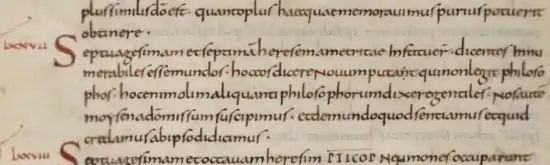 plus similis dō est · quanto plus haec quae memoravimus purius potuerit
obtinere ·
lxxvii Septuagesimam et septimā heresem ametritae Instituer̄ · dicentes Innu
merabiles esse mundos · hoc eos dicere Novum putant qui non legit philoso
phos · hoc enim olim aliquanti philosophorum dixere gentiles · Nos autē
moysen ad nom̄ missum suscipimus · et de mundo quod sentiamus et quid
credamus ab ipso didicimus ·
lxxviii Septuagesimam et octavam heresim